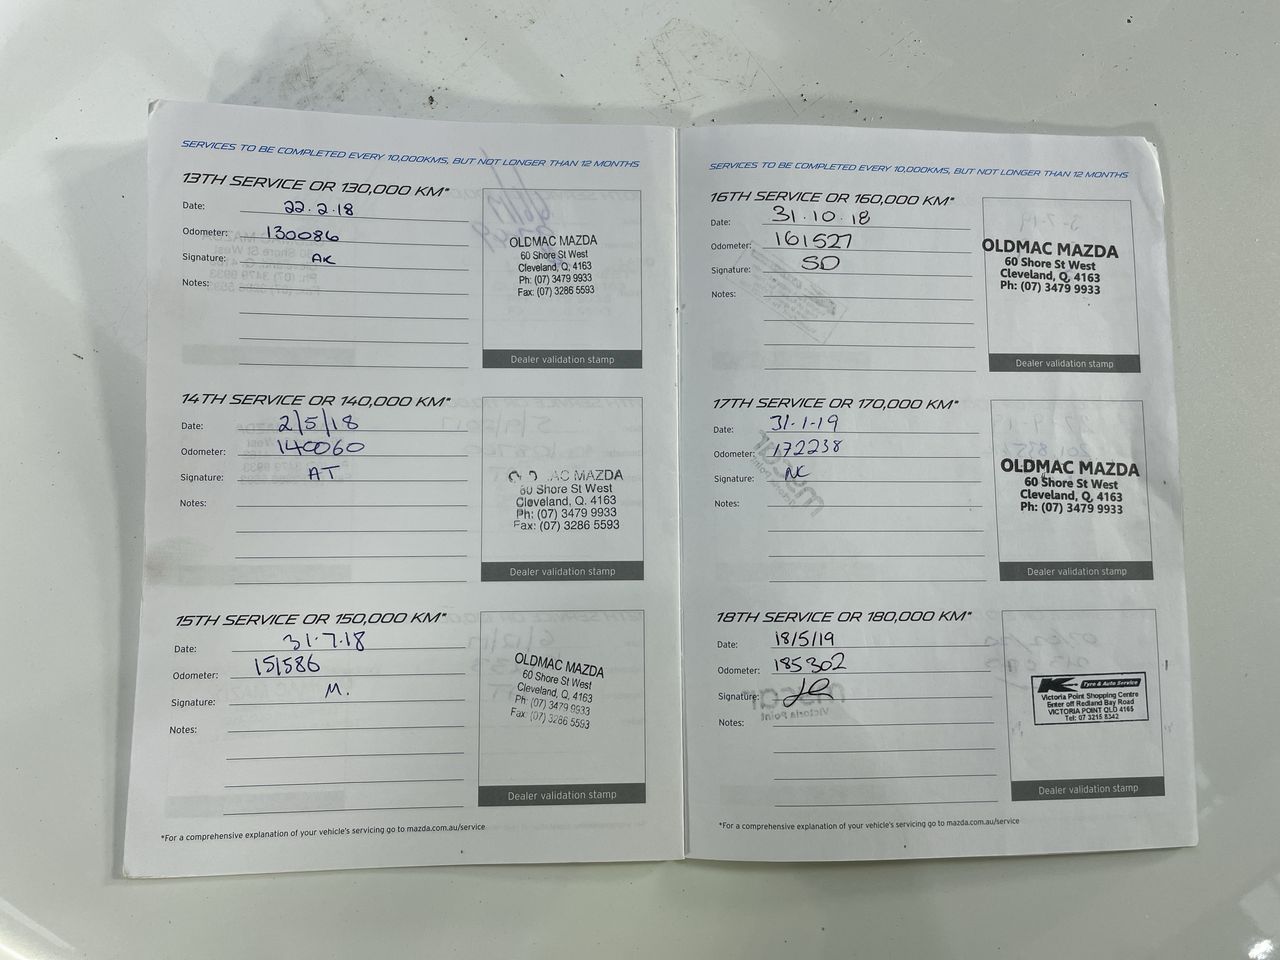 SERVICES TO BE COMPLETED EVERY 10,000KMS, BUT NOT LONGER THAN 12 MONTHS
13TH SERVICE OR 130,000 KM*
Date: 22.2.18
Odometer: 130086
Signature: AK
Notes:
OLDMAC MAZDA
60 Shore St West
Cleveland, Q, 4163
Ph: (07) 3479 9933
Fax: (07) 3286 5593
Dealer validation stamp
14TH SERVICE OR 140,000 KM*
Date: 2/5/18
Odometer: 140060
Signature: AT
Notes:
AC MAZDA
60 Shore St West
Cleveland, Q. 4163
Ph: (07) 3479 9933
Fax: (07) 3286 5593
Dealer validation stamp
15TH SERVICE OR 150,000 KM*
Date: 31.7.18
Odometer: 151586
Signature: M.
Notes:
OLDMAC MAZDA
60 Shore St West
Cleveland, Q, 4163
Ph: (07) 3479 9933
Fax: (07) 3286 5593
Dealer validation stamp
*For a comprehensive explanation of your vehicle's servicing go to mazda.com.au/service
SERVICES TO BE COMPLETED EVERY 10,000KMS, BUT NOT LONGER THAN 12 MONTHS
16TH SERVICE OR 160,000 KM*
Date: 31.10.18
Odometer: 161527
Signature: SD
Notes:
OLDMAC MAZDA
60 Shore St West
Cleveland, Q, 4163
Ph: (07) 3479 9933
Dealer validation stamp
17TH SERVICE OR 170,000 KM*
Date: 31-1-19
Odometer: 172238
Signature: NC
Notes:
OLDMAC MAZDA
60 Shore St West
Cleveland, Q, 4163
Ph: (07) 3479 9933
Dealer validation stamp
18TH SERVICE OR 180,000 KM*
Date: 18/5/19
Odometer: 185302
Signature:
Notes:
K Tyre & Auto Service
Victoria Point Shopping Centre
Enter off Redland Bay Road
VICTORIA POINT QLD 4165
Tel: 07 3215 8342
Dealer validation stamp
*For a comprehensive explanation of your vehicle's servicing go to mazda.com.au/service